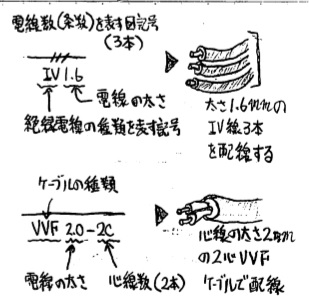 電線数(条数)を表す図記号
(3本)
IV 1.6
電線の太さ
絶縁電線の種類を表す記号
太さ1.6mmの
IV線3本
を配線する
ケーブルの種類
VVF 2.0-2C
電線の太さ
心線数(2本)
心線の太さ2mm
の2心VVF
ケーブルで配線